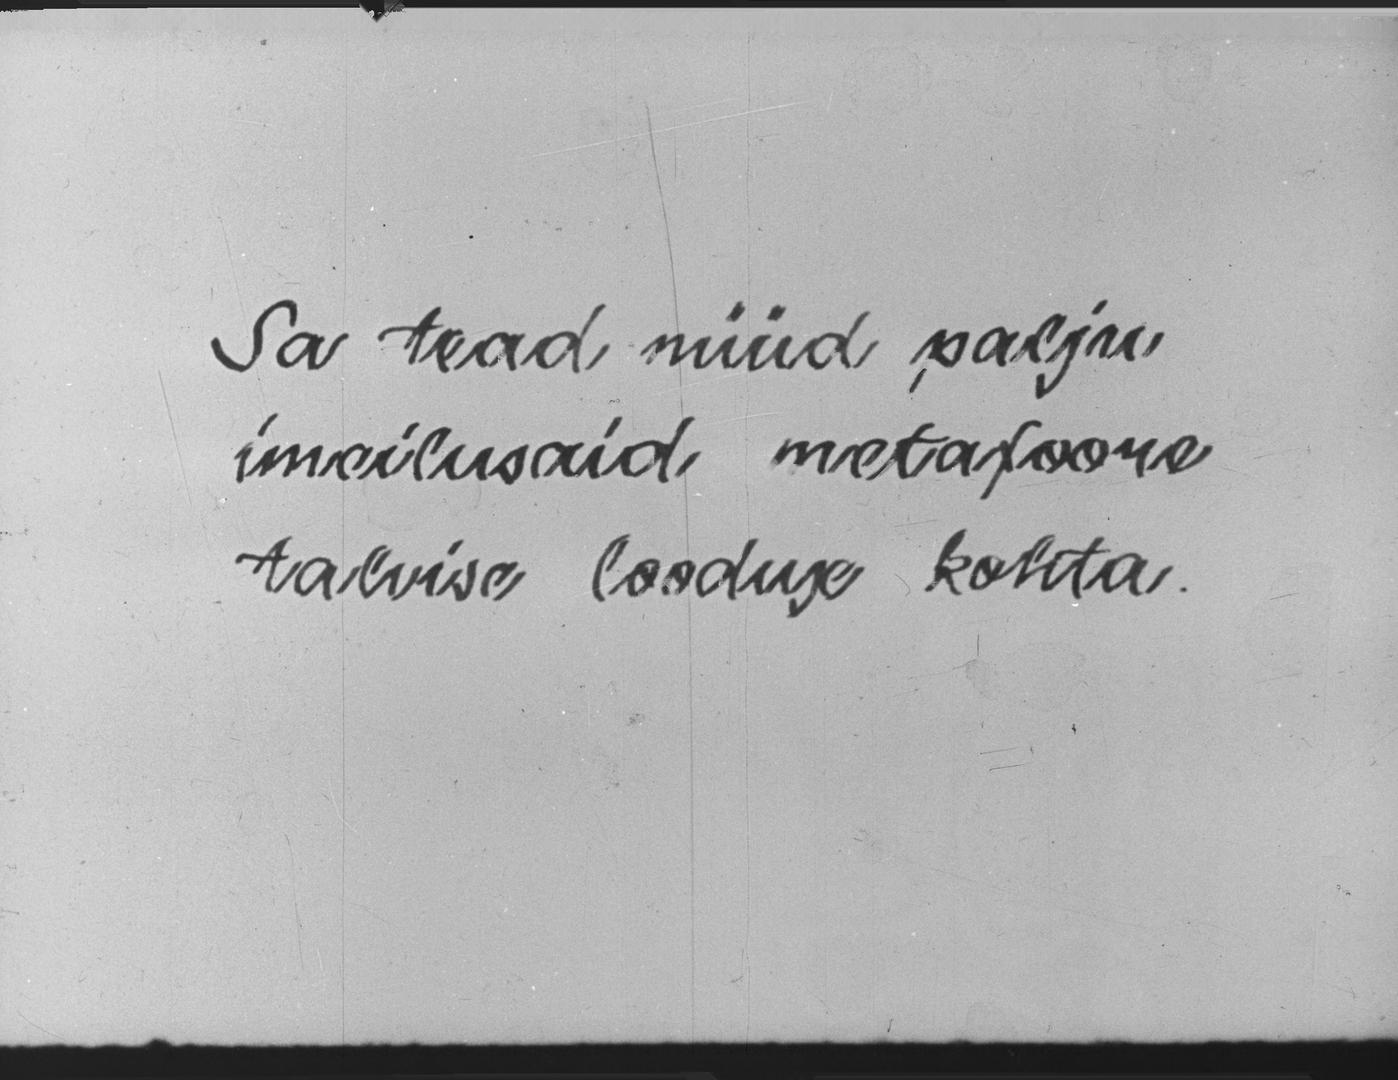 Sa tead nüüd palju
imeilusaid metafoore
talvise looduse kohta.